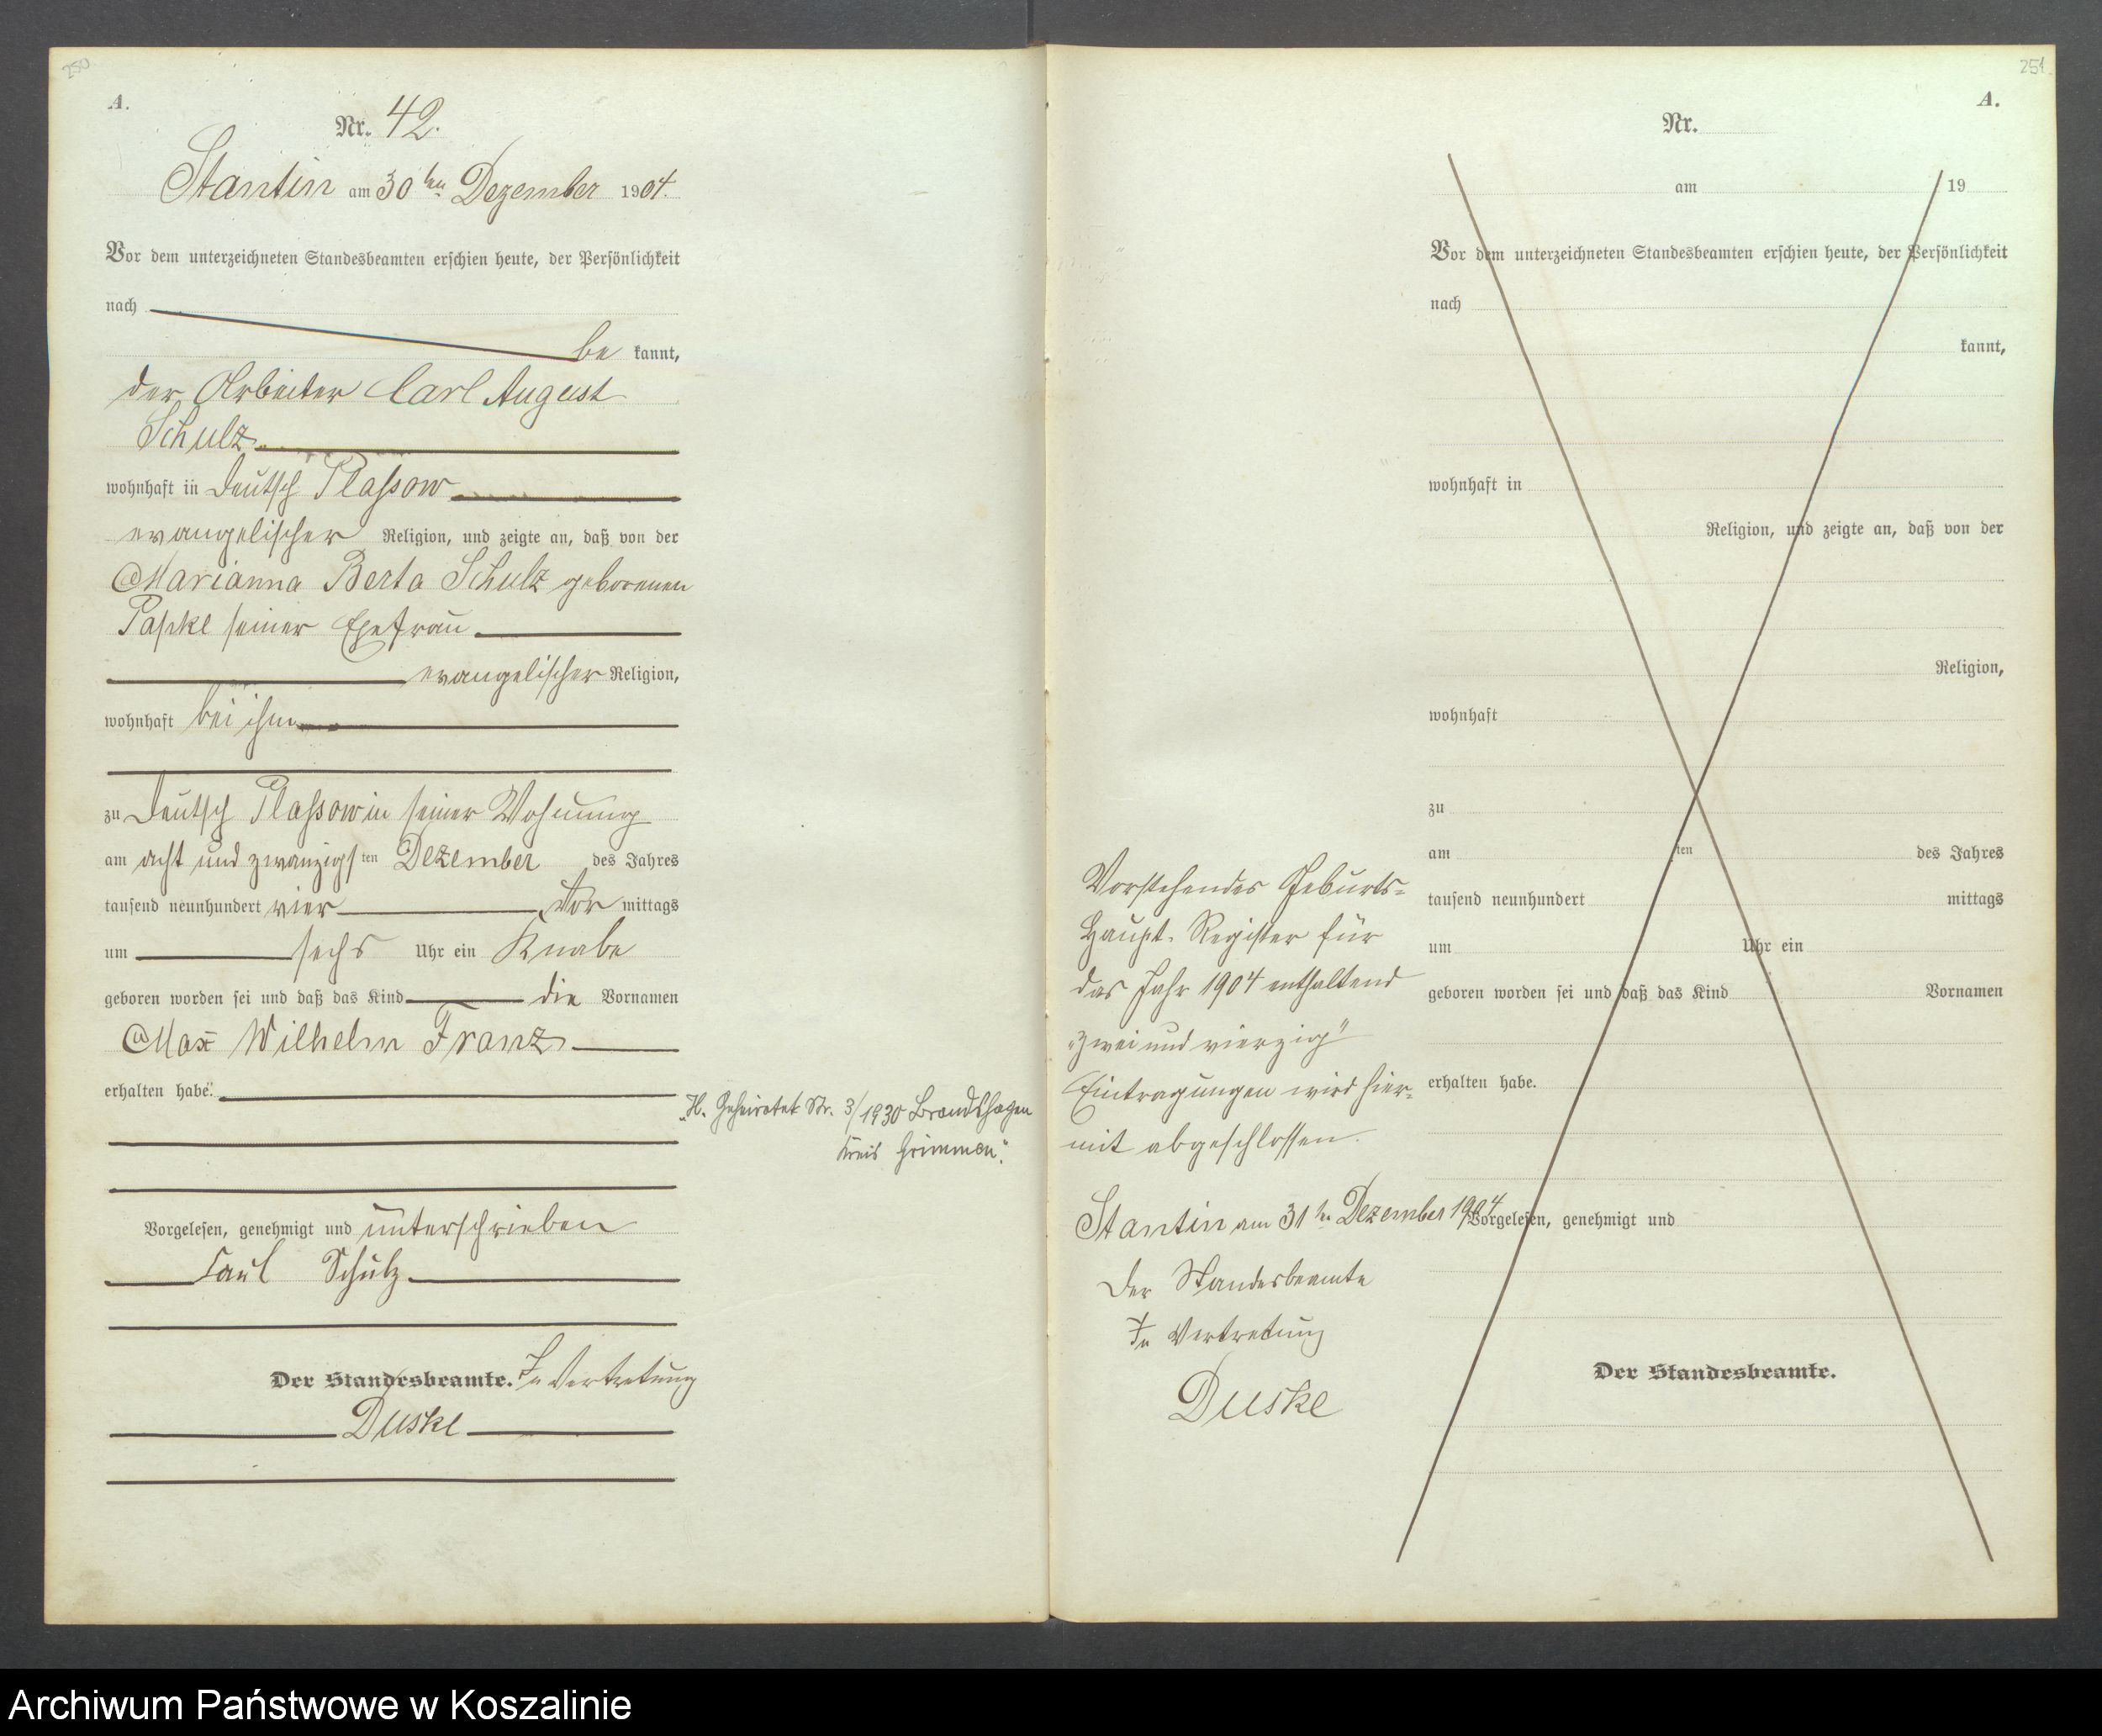 250
A.
Nr. 42.
Stantin am 30ten Dezember 1904.
Vor dem unterzeichneten Standesbeamten erschien heute, der Persönlichkeit
nach
be kannt,
der Arbeiter Carl August
Schulz
wohnhaft in Deutsch Plassow
evangelischer Religion, und zeigte an, daß von der
Marianna Berta Schulz geborenen
Papke seiner Ehefrau
evangelischer Religion,
wohnhaft bei ihm
zu Deutsch Plassow in seiner Wohnung
am acht und zwanzigsten Dezember des Jahres
tausend neunhundert vier Vor mittags
um sechs Uhr ein Knabe
geboren worden sei und daß das Kind die Vornamen
Max Wilhelm Franz
erhalten habe.
Vorgelesen, genehmigt und unterschrieben
Carl Schulz
Der Standesbeamte. In Vertretung
Duske
"H. Geheiratet Nr. 3/1930 Brandshagen
Kreis Grimmen".
251.
A.
Nr.
am 19
Vor dem unterzeichneten Standesbeamten erschien heute, der Persönlichkeit
nach
kannt,
wohnhaft in
Religion, und zeigte an, daß von der
Religion,
wohnhaft
zu
am ten des Jahres
tausend neunhundert mittags
um Uhr ein
geboren worden sei und daß das Kind Vornamen
erhalten habe.
Vorgelesen, genehmigt und
Der Standesbeamte.
Vorstehendes Geburts-
Haupt-Register für
das Jahr 1904 enthaltend
"zwei und vierzig"
Eintragungen wird hier-
mit abgeschlossen.
Stantin am 31ten Dezember 1904
Der Standesbeamte
In Vertretung
Duske
Archiwum Państwowe w Koszalinie